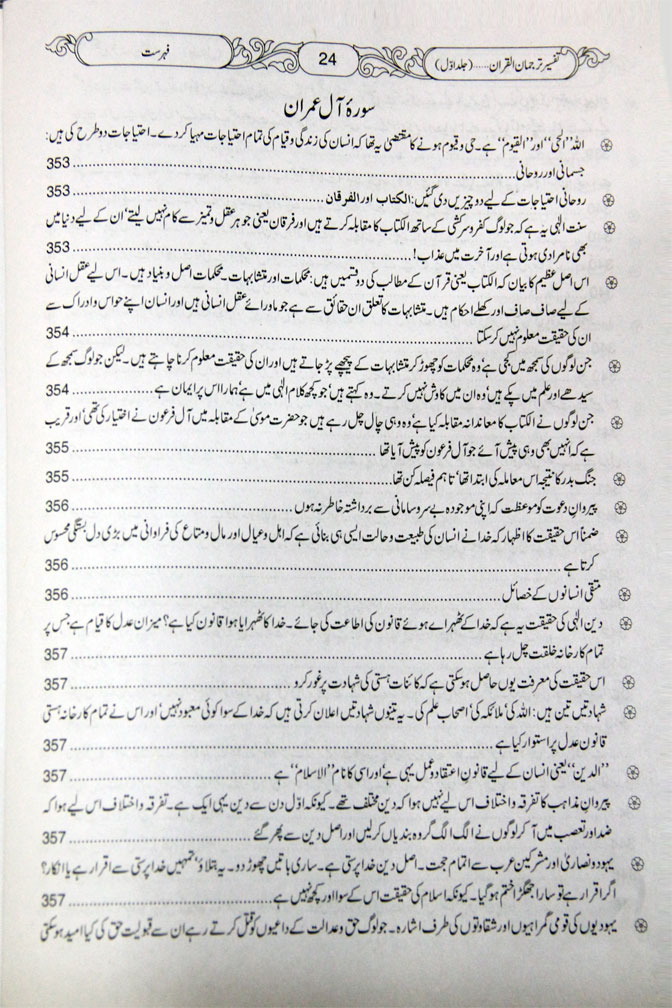 تفسیر ترجمان القرآن.....(جلد اوّل) 24 فہرست
سورۂ آل عمران
اللہ ''الحی'' اور ''القیوم'' ہے۔ حی و قیوم ہونے کا مقتضی یہ تھا کہ انسان کی زندگی و قیام کی تمام احتیاجات مہیا کر دے۔ احتیاجات دو طرح کی ہیں:
جسمانی اور روحانی 353
روحانی احتیاجات کے لیے دو چیزیں دی گئیں: الکتاب اور الفرقان 353
سنت الٰہی یہ ہے کہ جو لوگ کفر و سرکشی کے ساتھ الکتاب کا مقابلہ کرتے ہیں اور فرقان یعنی جوہر عقل و تمیز سے کام نہیں لیتے' ان کے لیے دنیا میں
بھی نامرادی ہوتی ہے اور آخرت میں عذاب! 353
اس اصل عظیم کا بیان کہ الکتاب یعنی قرآن کے مطالب کی دو قسمیں ہیں: محکمات اور متشابہات۔ محکمات اصل و بنیاد ہیں۔ اس لیے عقل انسانی
کے لیے صاف صاف اور کھلے احکام ہیں۔ متشابہات کا تعلق ان حقائق سے ہے جو ماورائے عقل انسانی ہیں اور انسان اپنے حواس و ادراک سے
ان کی حقیقت معلوم نہیں کر سکتا 354
جن لوگوں کی سمجھ میں کجی ہے' وہ محکمات کو چھوڑ کر متشابہات کے پیچھے پڑ جاتے ہیں اور ان کی حقیقت معلوم کرنا چاہتے ہیں۔ لیکن جو لوگ سمجھ کے
سیدھے اور علم میں پکے ہیں' وہ ان میں کاوش نہیں کرتے۔ وہ کہتے ہیں' جو کچھ کلام الٰہی میں ہے' ہمارا اس پر ایمان ہے 354
جن لوگوں نے الکتاب کا معاندانہ مقابلہ کیا ہے' وہ وہی چال چل رہے ہیں جو حضرت موسیٰ کے مقابلہ میں آل فرعون نے اختیار کی تھی' اور قریب
ہے کہ انہیں بھی وہی پیش آئے جو آل فرعون کو پیش آیا تھا 355
جنگ بدر کا نتیجہ اس معاملہ کی ابتدا تھا' تاہم فیصلہ کن تھا 355
پیروان دعوت کو موعظت کہ اپنی موجودہ بے سروسامانی سے برداشتہ خاطر نہ ہوں 356
ضمناً اس حقیقت کا اظہار کہ خدا نے انسان کی طبیعت و حالت ایسی ہی بنائی ہے کہ اہل و عیال اور مال و متاع کی فراوانی میں بڑی دل بستگی محسوس
کرتا ہے 356
متقی انسانوں کے خصائل 356
دین الٰہی کی حقیقت یہ ہے کہ خدا کے ٹھہرائے ہوئے قانون کی اطاعت کی جائے۔ خدا کا ٹھہرایا ہوا قانون کیا ہے؟ میزان عدل کا قیام ہے جس پر
تمام کارخانہ خلقت چل رہا ہے 357
اس حقیقت کی معرفت یوں حاصل ہو سکتی ہے کہ کائنات ہستی کی شہادت پر غور کرو 357
شہادتیں تین ہیں: اللہ کی' ملائکہ کی' اصحاب علم کی۔ یہ تینوں شہادتیں اعلان کرتی ہیں کہ خدا کے سوا کوئی معبود نہیں' اور اس نے تمام کارخانہ ہستی
قانون عدل پر استوار کیا ہے 357
''الدین'' یعنی انسان کے لیے قانون اعتقاد و عمل یہی ہے' اور اسی کا نام ''الاسلام'' ہے 357
پیروان مذاہب کا تفرقہ و اختلاف اس لیے نہیں ہوا کہ دین مختلف تھے۔ کیونکہ اوّل دن سے دین یہی ایک ہے۔ تفرقہ و اختلاف اس لیے ہوا کہ
ضد اور تعصب میں آ کر لوگوں نے الگ الگ گروہ بندیاں کر لیں اور اصل دین سے پھر گئے 357
یہود و نصاریٰ اور مشرکین عرب سے اتمام حجت۔ اصل دین خدا پرستی ہے۔ ساری باتیں چھوڑ دو۔ یہ بتلاؤ' تمہیں خدا پرستی سے اقرار ہے یا انکار؟
اگر اقرار ہے تو سارا جھگڑا ختم ہو گیا۔ کیونکہ اسلام کی حقیقت اس کے سوا اور کچھ نہیں ہے 357
یہودیوں کی قومی گمراہیوں اور شقاوتوں کی طرف اشارہ۔ جو لوگ حق و عدالت کے داعیوں کو قتل کرتے رہے ان سے قبولیت حق کی کیا امید ہو سکتی